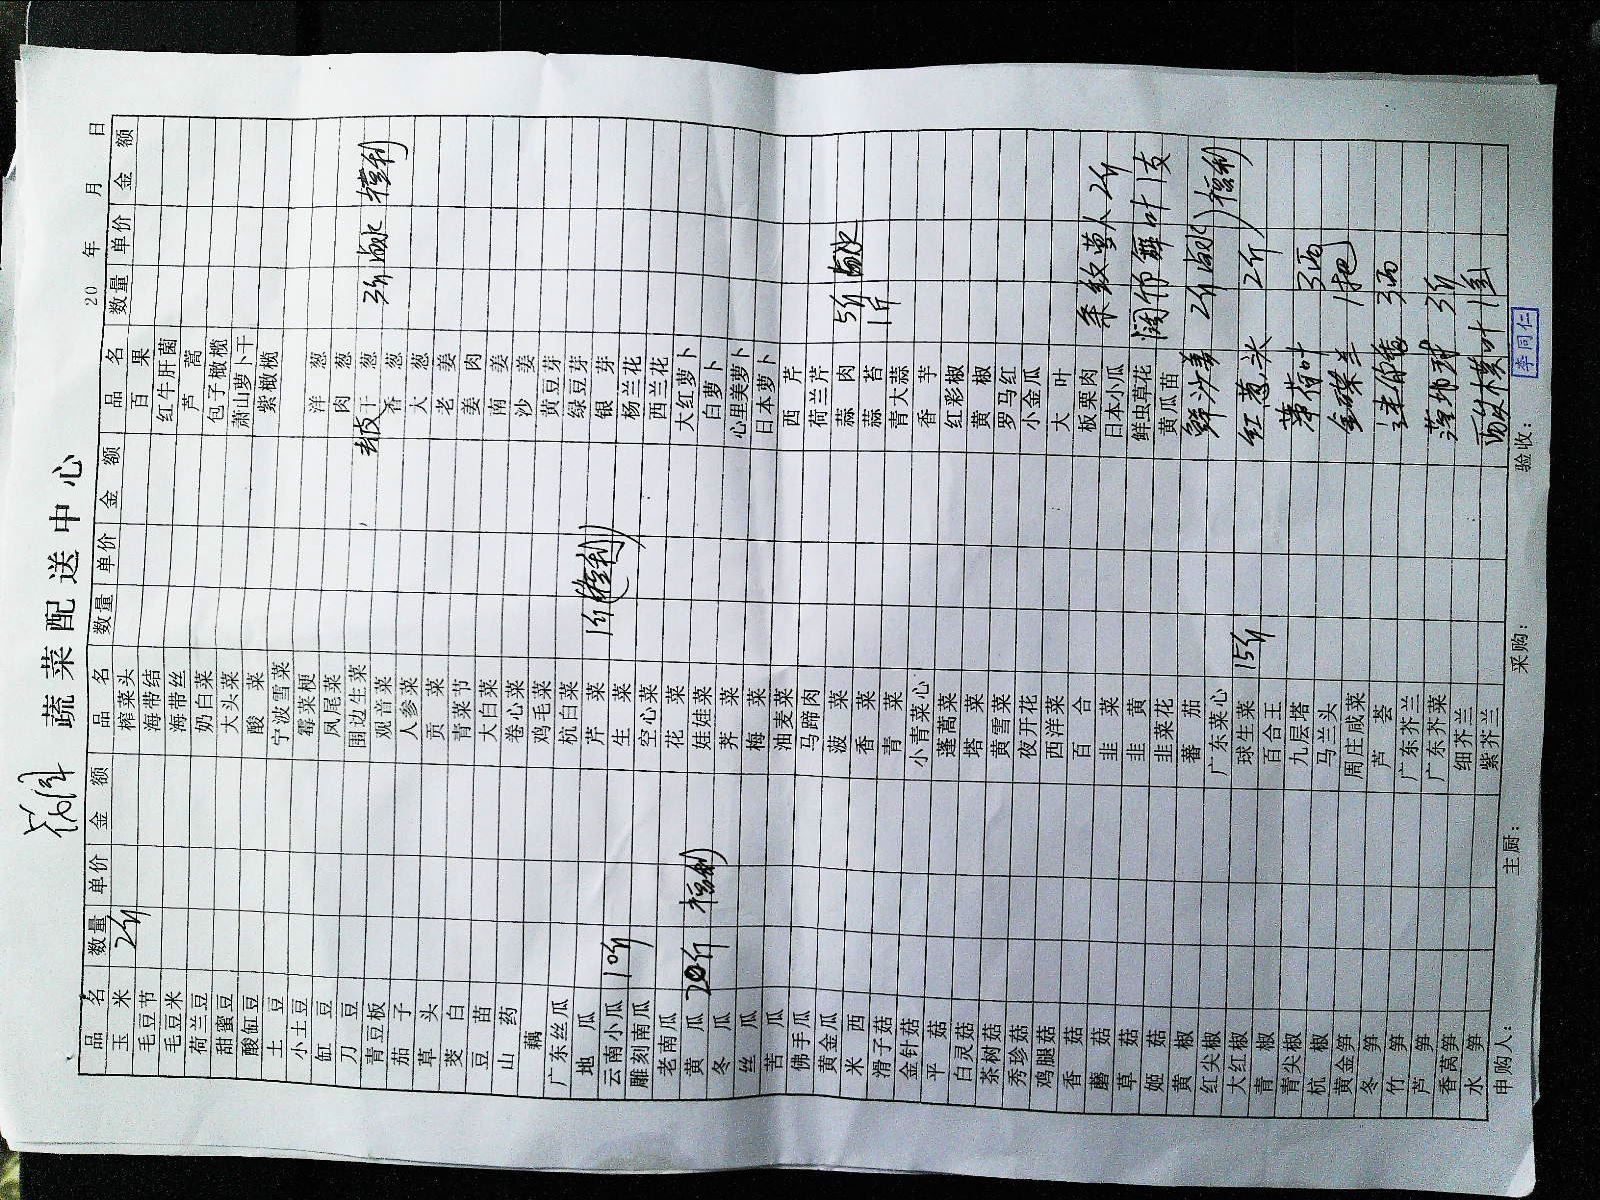 蔬菜配送中心
20 年 月 日
品名 数量 单价 金额 品名 数量 单价 金额 品名 数量 单价 金额
玉米 2斤 榨菜头 百果
毛豆节 海带结 红牛肝菌
毛豆米 海带丝 芦蒿
荷兰豆 奶白菜 包子橄榄
甜蜜豆 大头菜 萧山萝卜干
酸缸豆 酸菜 紫橄榄
土豆 宁波雪菜
小土豆 霉菜梗 洋葱
缸豆 凤尾菜 肉葱
刀豆 围边生菜 干葱 3斤 卤水 福利
青豆板 观音菜 香葱
茄子 人参菜 大葱
草头 贡菜 老姜
茭白 青菜节 姜肉
豆苗 大白菜 南姜
山药 卷心菜 沙姜
藕 鸡毛菜 黄豆芽
广东丝瓜 杭白菜 绿豆芽
地瓜 芹菜 1斤(福利) 银芽
云南小瓜 10斤 生菜 杨兰花
雕刻南瓜 空心菜 西兰花
老南瓜 花菜 大红萝卜
黄瓜 20斤 福利 娃娃菜 白萝卜
冬瓜 荠菜 心里美萝卜
丝瓜 梅菜 日本萝卜
苦瓜 油麦菜 西芹
佛手瓜 马蹄肉 荷兰芹
黄金瓜 菠菜 蒜肉 5斤 卤水
米西 香菜 蒜苔 1斤
滑子菇 青菜 青大蒜
金针菇 小青菜心 香芋
平菇 蓬蒿菜 红彩椒
白灵菇 塔菜 黄椒
茶树菇 黄雪菜 罗马红
秀珍菇 夜开花 小金瓜
鸡腿菇 西洋菜 大叶
香菇 百合 板栗肉
蘑菇 韭菜 日本小瓜
草菇 韭黄 鲜虫草花
姬菇 韭菜花 黄瓜苗
黄椒 蕃茄 鲜沙姜 2斤 卤水 福利
红尖椒 广东菜心
大红椒 球生菜 15斤 红葱头 2斤
青椒 百合王
青尖椒 九层塔 薄荷叶 3两
杭椒 马兰头 金蝶兰 1把
黄金笋 周庄咸菜
冬笋 芦荟 3两
竹笋 广东芥兰
芦笋 广东芥菜 3斤
香莴笋 细芥兰
水笋 紫芥兰
申购人: 主厨: 采购: 验收:
李同仁